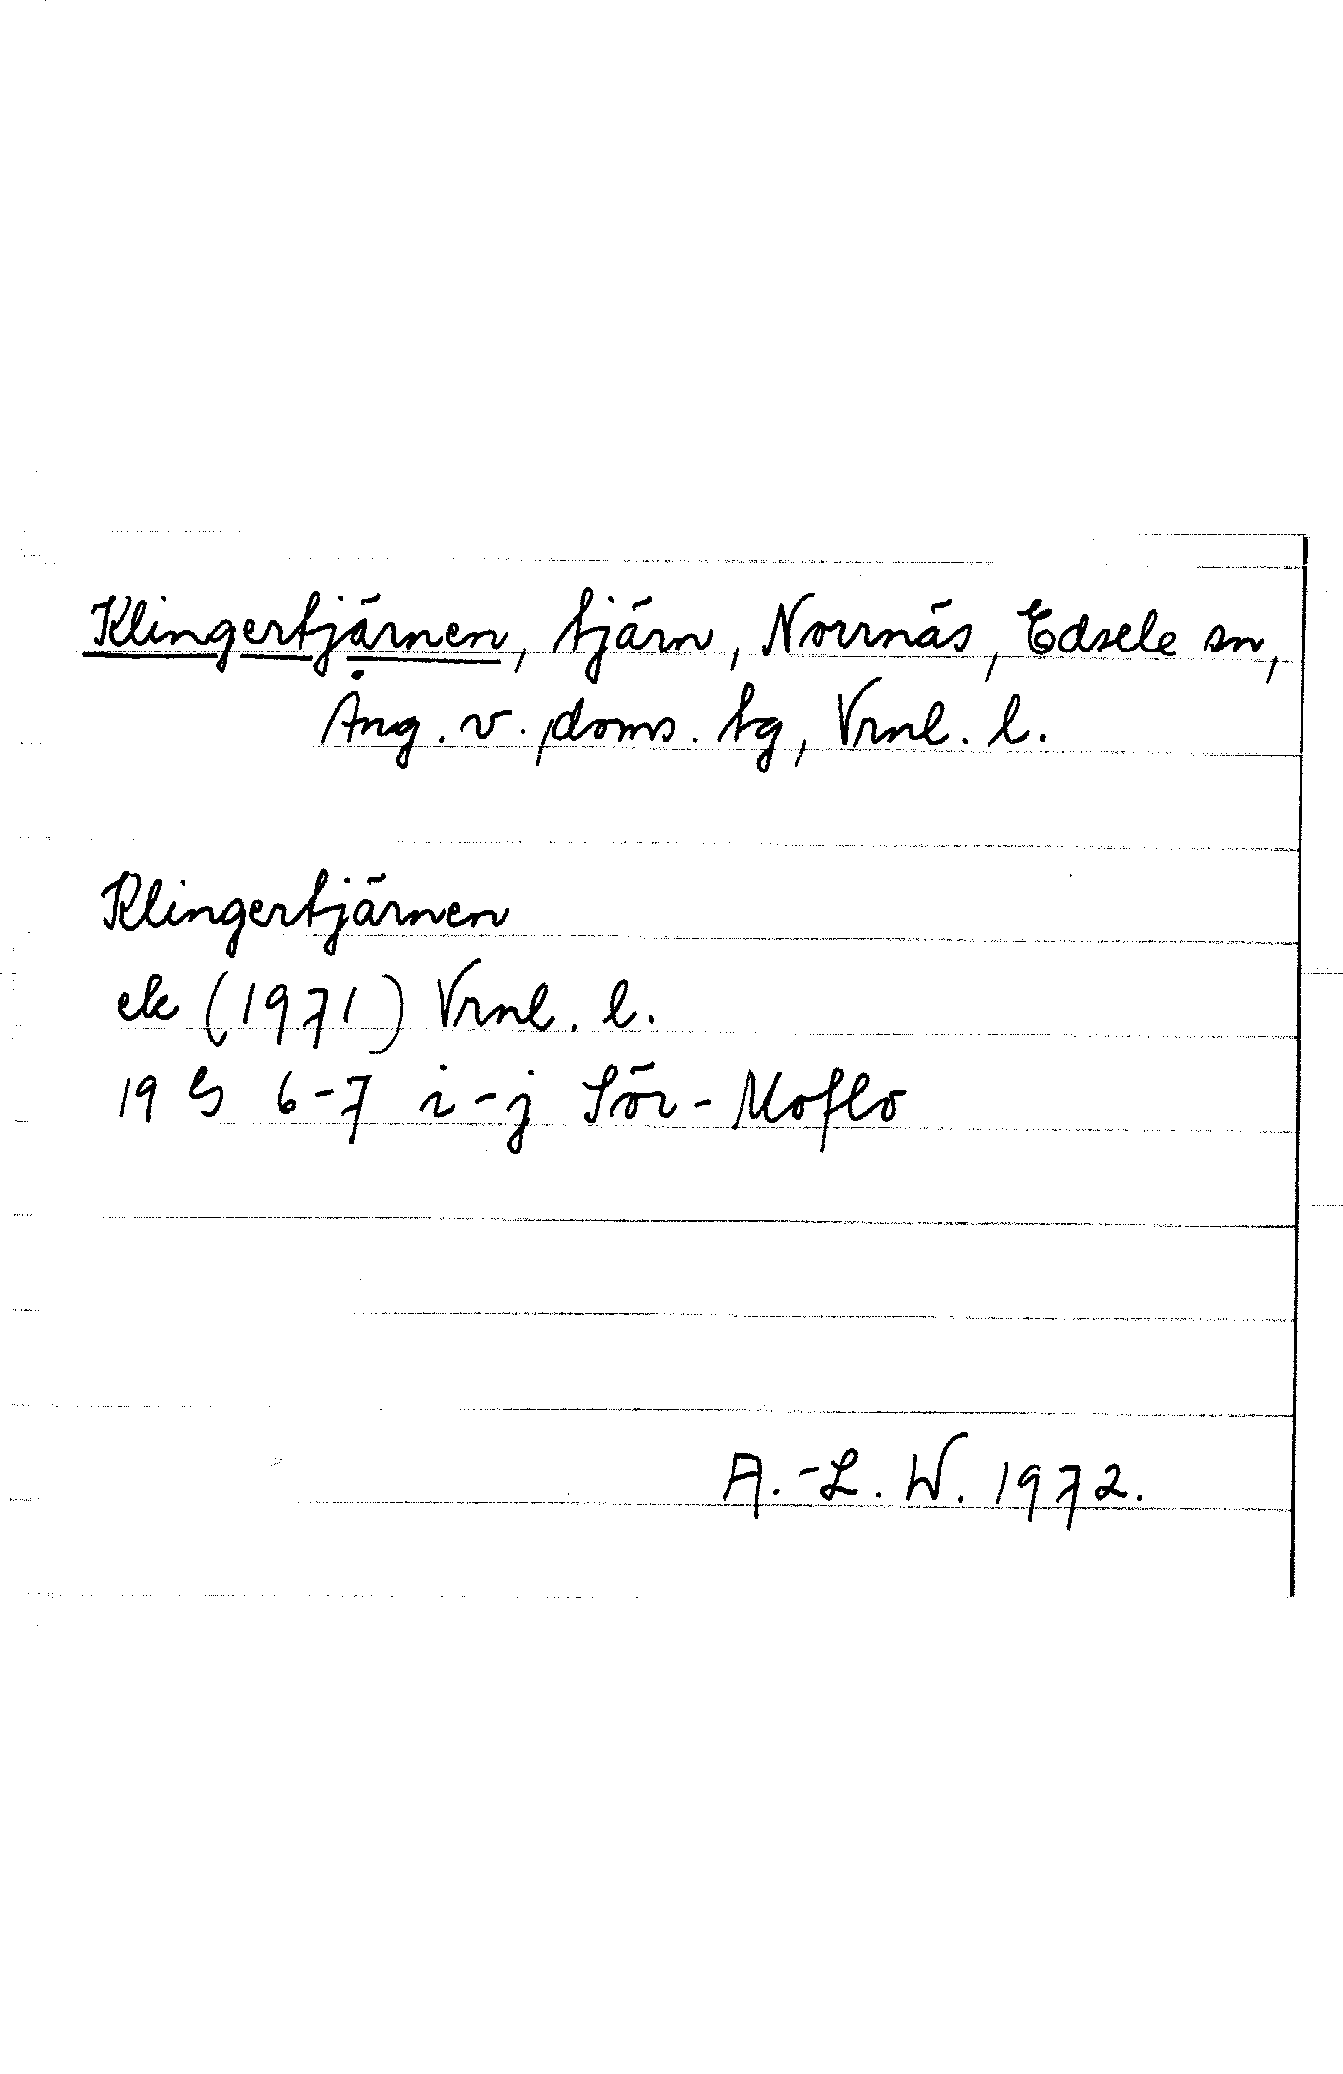 Klingertjärnen, tjärn, Norrnäs, Edsele sn,
Ång. v. doms. tg, Vrnl. l.
Klingertjärnen
ek (1971) Vrnl. l.
19 G 6-7 i-j Sör-Moflo
A.-L. W. 1972.